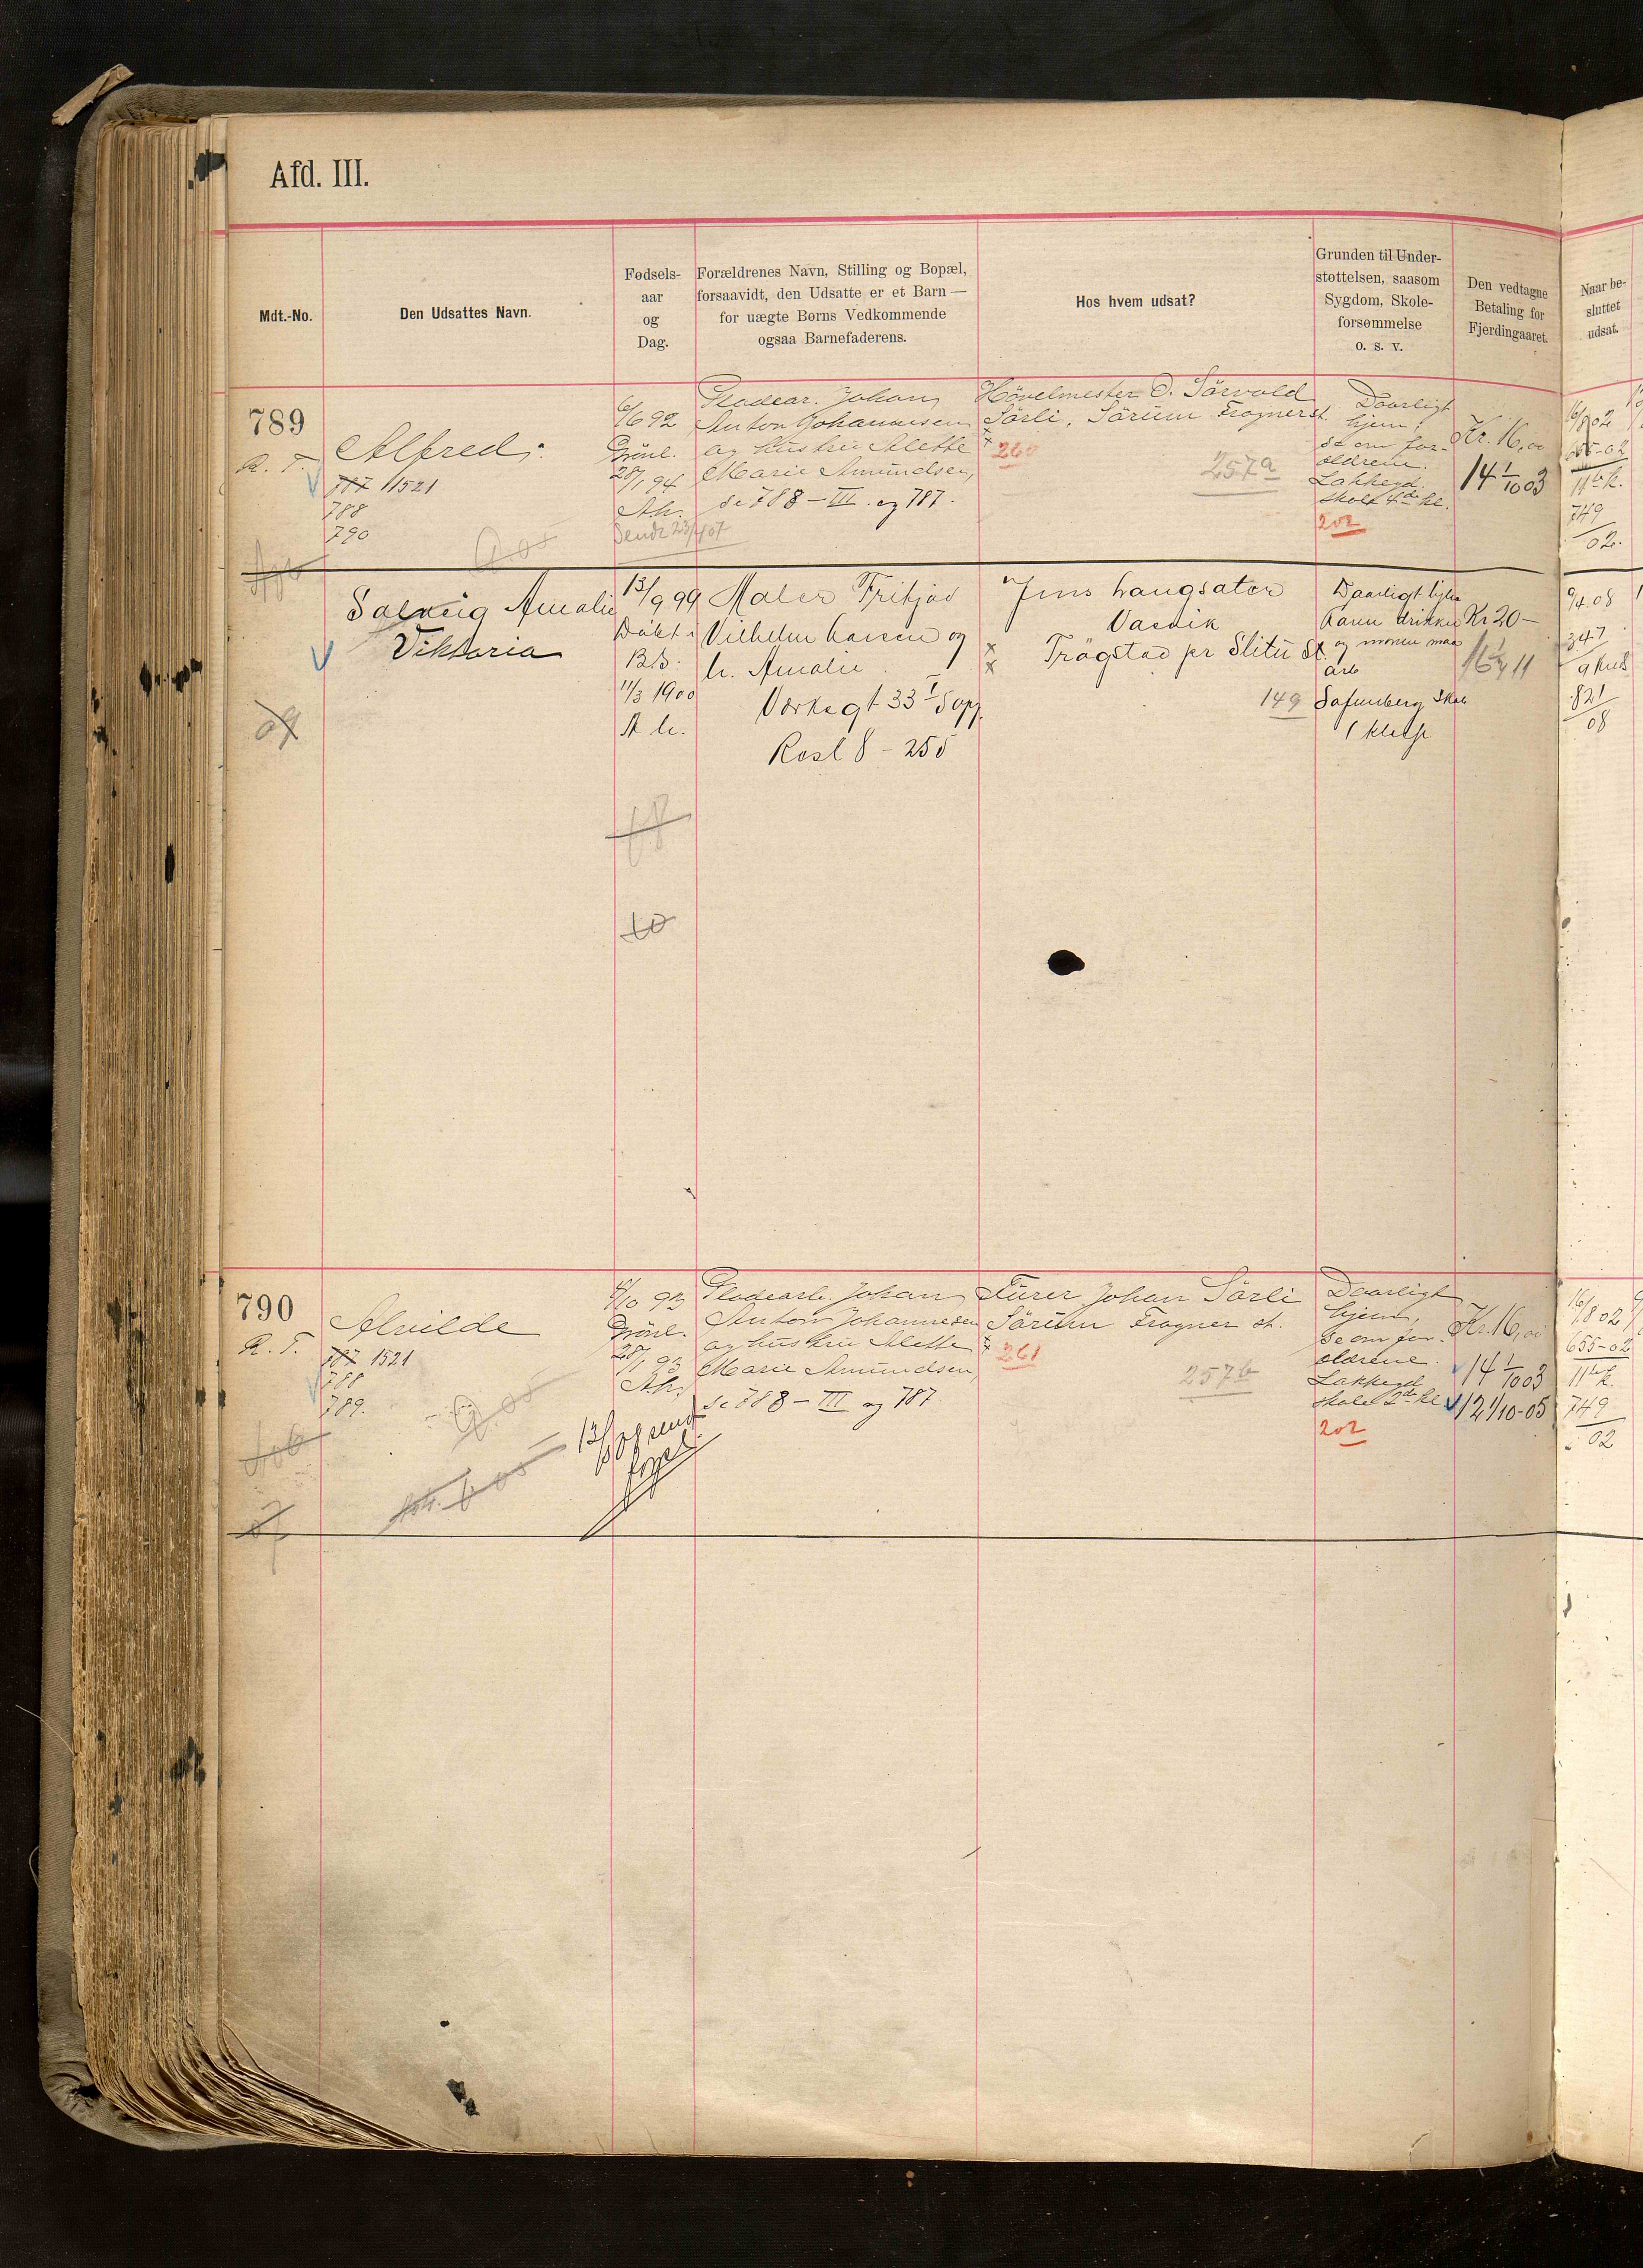 Afd. III.
Mdt.-No.
Den Udsattes Navn.
Fødsels-
aar
og
Dag.
Forældrenes Navn, Stilling og Bopæl,
forsaavidt, den Udsatte er et Barn —
for uægte Børns Vedkommende
ogsaa Barnefaderens.
Hos hvem udsat?
Grunden til Under-
støttelsen, saasom
Sygdom, Skole-
forsømmelse
o. s. v.
Den vedtagne
Betaling for
Fjerdingaaret.
Naar be-
sluttet
udsat.
789
R. T.
Alfred
787 1521
788
790
6/6 92
Grönl.
28/1 94
Ah.
Johan
Anton Johannesen
og hustru Alette
Marie Amundsen,
se 788 – III. og 787.
Hövelmester O. Sörvald
Sörli, Sörum Frogner st.
260
257a
Daarligt
hjem,
se om for-
ældrene.
Lakkegd.
skole 4de kl.
202
Kr. 16,00
14 1/10 03
16/8 02
655-02
11te k.
749
02.
Solveig Amalie
Viktoria
13/9 99
Döbt i
11/3 1900
A h.
Maler Fritjod
Vilhelm Larsen og
h. Amalie
Verksgt 33 I opg.
Rosl 8 - 255
Jens Langsæter
Trögstad pr Slitu St.
149
Daarligt hjem
Kr 20 –
16 1/4 11
9/4 08
347
821
08
1 klasse
790
R. T.
Alvilde
787 1521
788
789.
4/10 93
Grönl.
28/1 93
Ah.
Johan
Anton Johannesen
og hustru Alette
Marie Amundsen,
se 788 – III og 787.
Furer Johan Sörli
Sörum Frogner st.
261
257b
Daarligt
hjem,
se om for-
ældrene.
Lakkegd
skole 2de kl
202
Kr. 16,00
14 1/10 03
12 1/10-05
16/8 02
655-02
11te k.
749
02